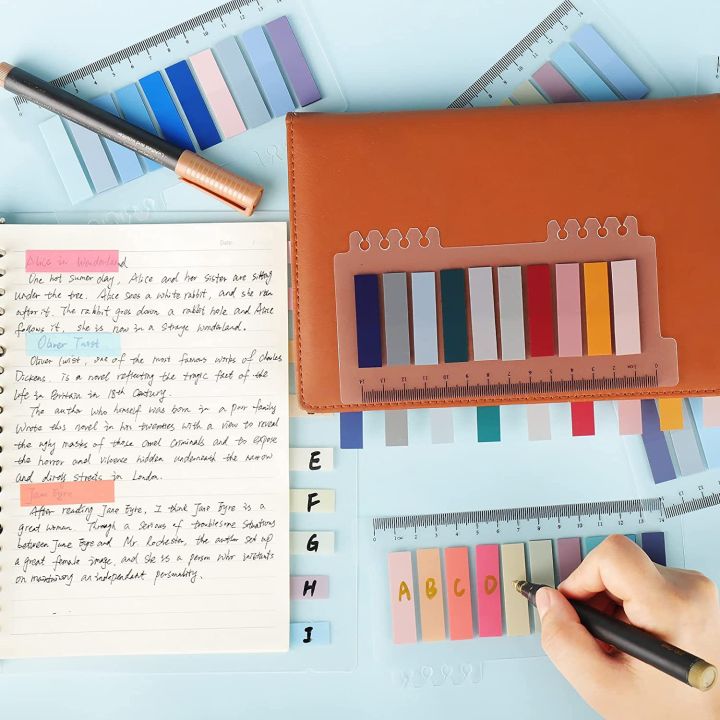 Date:
Alice in Wonderland
One hot sumer day, Alice and her sister are sitting
under the tree. Alice sees a white rabbit, and she run
after it. The rabbit goes down a rabbit hole and Alice
follows it, she is now in a strage wonderland.
Oliver Twist
Oliver Twist, one of the most famous works of Charles
Dickens. is a novel reflecting the tragic fact of the
life in Britain in 18th Century.
The author who himself was born in a poor family
wrote this novel in his twenties with a view to reveal
the ugly masks of those cruel criminals and to expose
the horror and vilence hidden underneath the narrow
and streets in London.
Jane Eyre
After reading Jane Eyre, I think Jane Eyre is a
great woman. Through a serious of troublesome situations
between Jane Eyre and Mr. Rochester, the author set up
a great female image, and she is a person who
on an independant personality.
E
F
G
H
I
A B C D
1cm 2 3 4 5 6 7 8 9 10 11 12 13 14